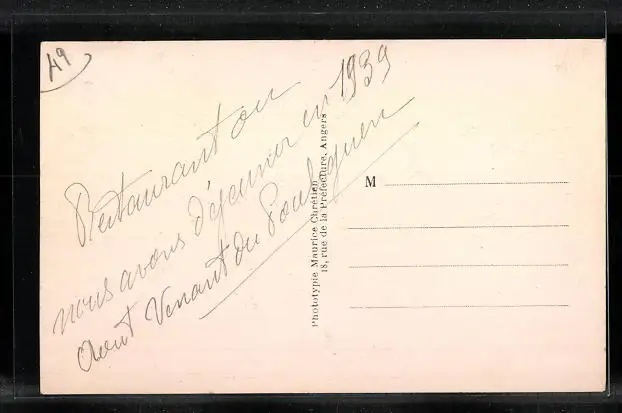 49
Restaurant ou
nous avons déjeuner en 1939
Aout Venant du Pouliguen
Phototypie Maurice Chrétien
18, rue de la Préfecture, Angers
M